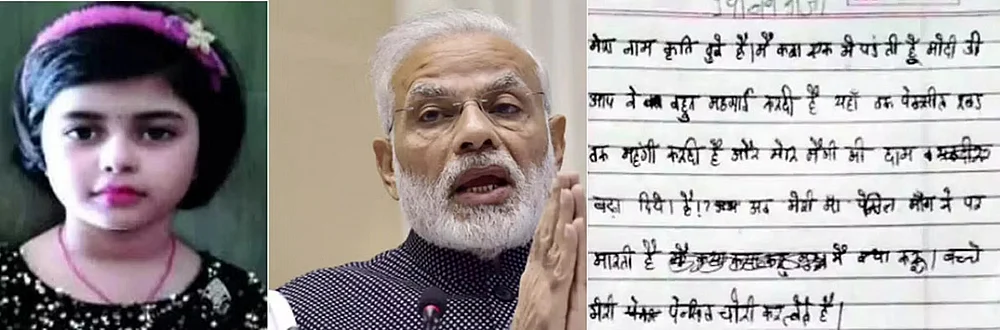 मेरा नाम कृति दुबे है। मैं कक्षा एक में पढ़ती हूँ मोदी जी
आप ने बहुत महगाई करदी है यहाँ तक पेन्सील रबड़
तक महंगी करदी है और मेरी मैगी की दाम भी
बढ़ा दिये है। अब मेरी मा पेन्सिल माँगने पर
मारती है मैं क्या करू। बच्चे
मेरी पेन्सिल चोरी कर लेते है।